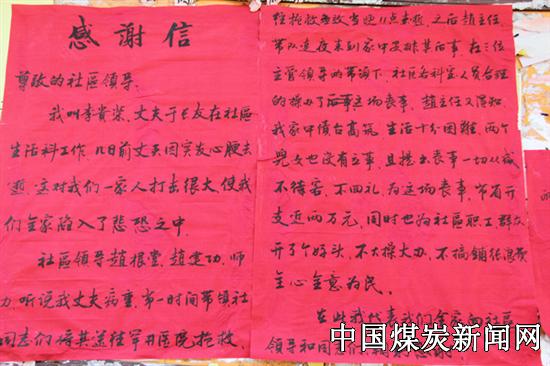 感謝信
尊敬的社區领导:
我叫李貴荣,丈夫于长友在社區
生活科工作,几日前丈夫因突发心梗去
逝,这对我们一家人打击很大,使我
们全家陷入了悲恐之中.
社區领导趙根堂,趙建功,师
力,听说我丈夫病重,第一时间带領社
同志们,将其送往军井医院抢救,
经抢救无效当晚11点去逝,之后趙主任,
带队连夜来到家中安排其后事,在三位
主管领导的带领下,社區各科室人员合理
的操办了后事这场丧事,趙主任又得知
我家中债台高筑,生活十分困難,两个
兒女也没有立事,且提出丧事一切从减
不待客,不回礼,为这场丧事,节省开
支近两万元,同时也为社區职工群众
开了个好头,不大操大办,不搞鋪张浪费
全心全意为民.
在此我代表我们全家向社區
领导和同
中国煤炭新闻网